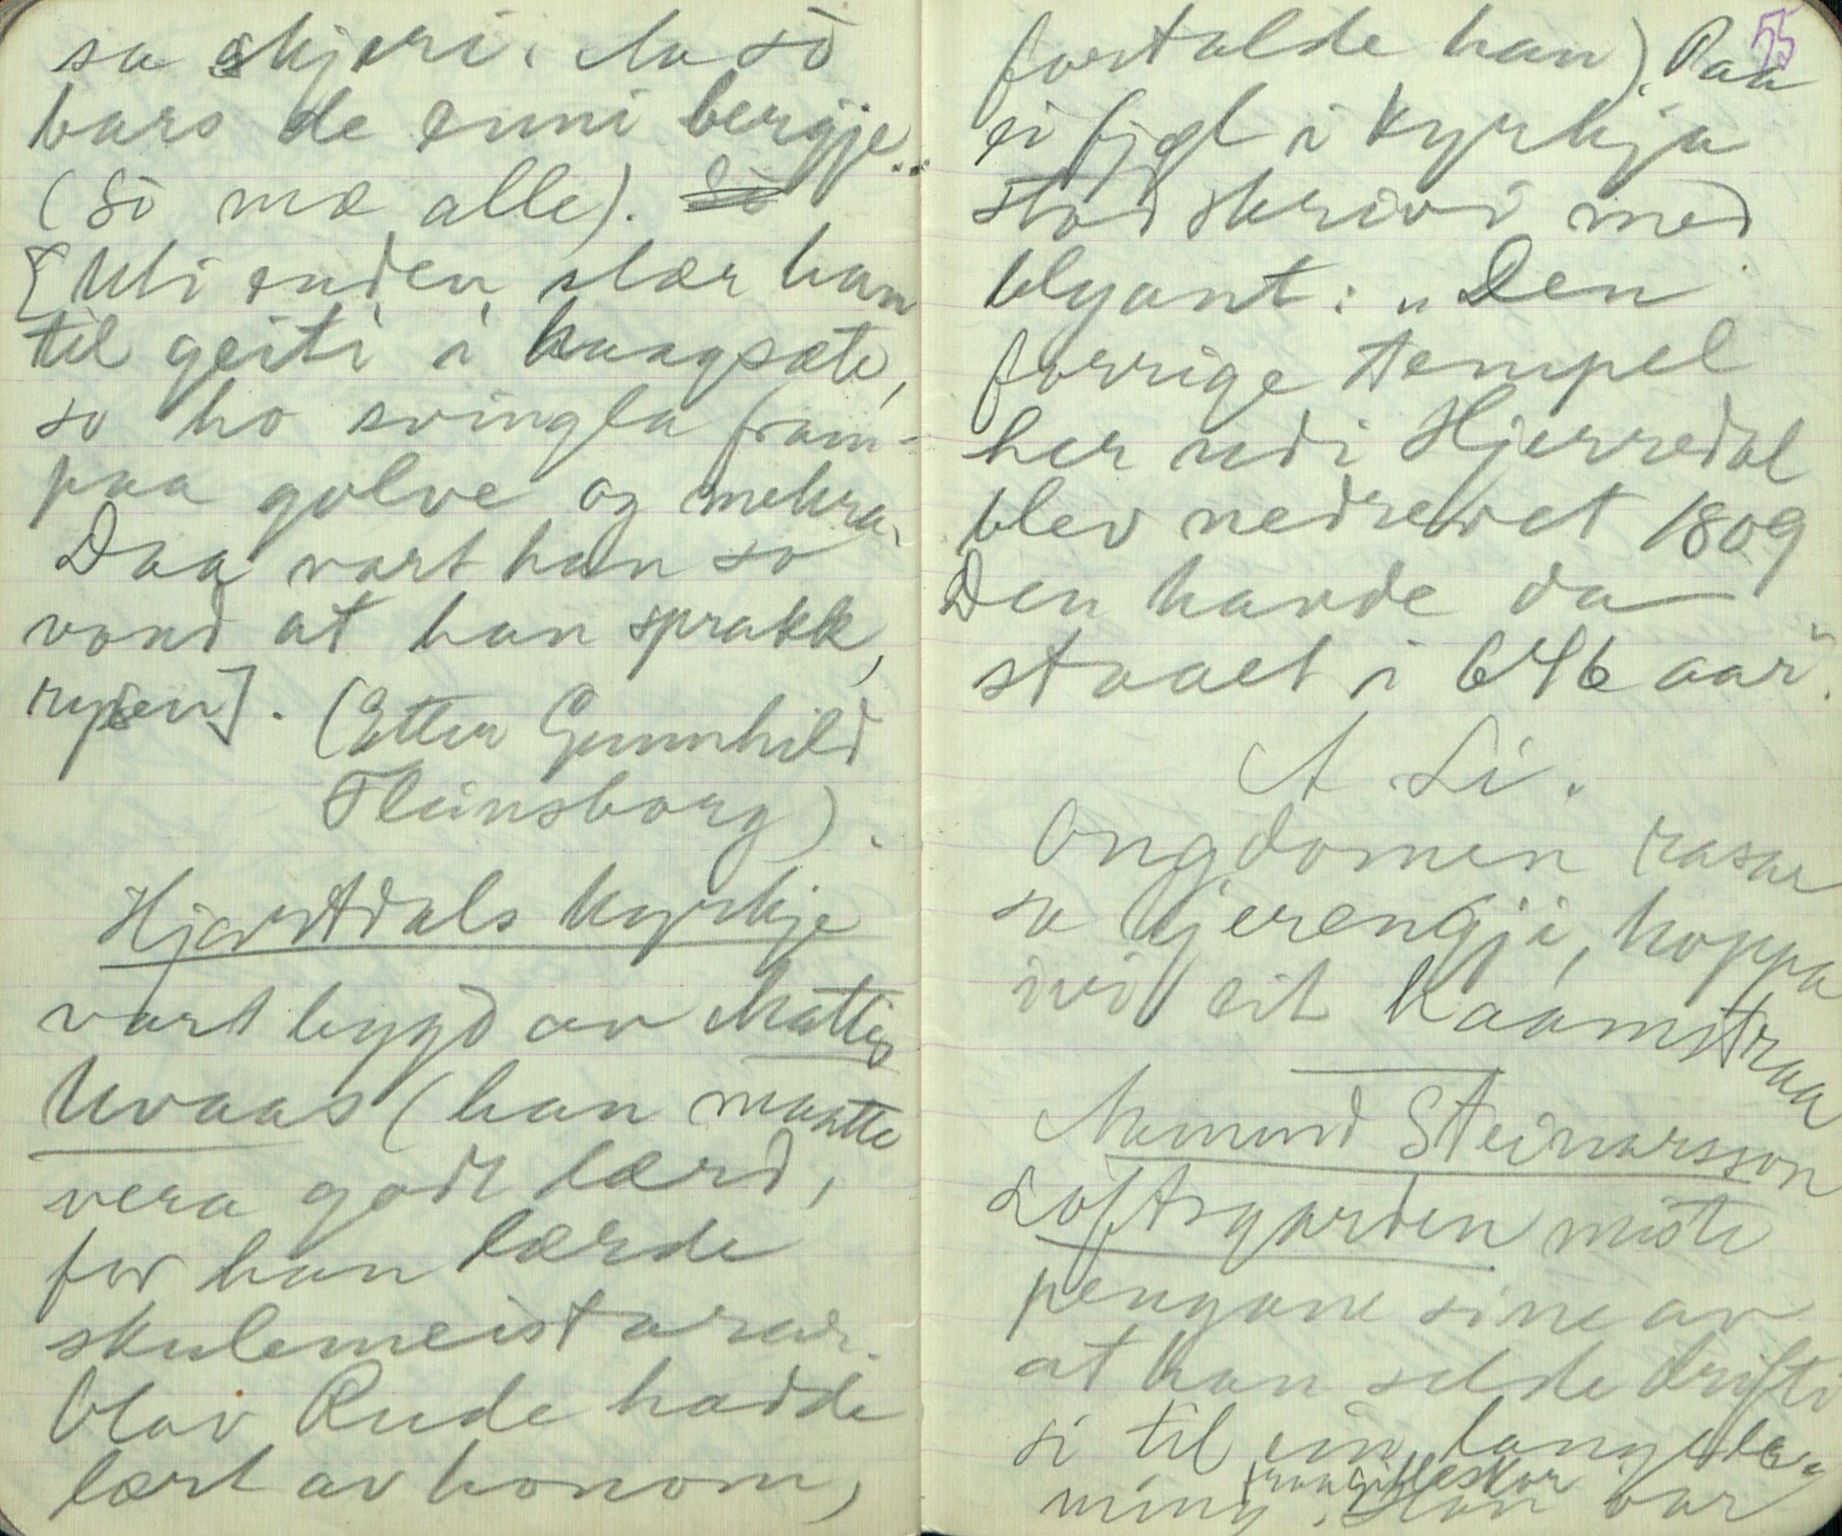 sa skjeri. Aa sò
bars de inni bergje.
(Sò mæ alle). Sò
[Uti enden slær han
til geiti i haagsæte,
so ho svingla fram-
paa golve og mekra.
Daa vart han so
vond at han sprakk,
rysen]. (Etter Gunnhild
Fleinsborg).
Hjartdals kyrkje
vart bygd av Mattis
Uvaas (han maatte
vera godt lærd,
for han lærde
skulemeistarar.
Olav Rude hadde
lært av honom,
55
fortalde han). Paa
ei fjøl i kyrkja
stod skrivi med
blyant: „Den
forrige tempel
her udi Hjerredal
blev nedrevet 1809
Den havde da
staaet i 646 aar".
A Li.
Ongdomen rasar
so gjerengji, hoppa
ivi eit kaamstraa
Aamund Steinarsson
Loftsgarden miste
pengane sine av
at han selde drifti
si til ein langlei-
ning. Han var